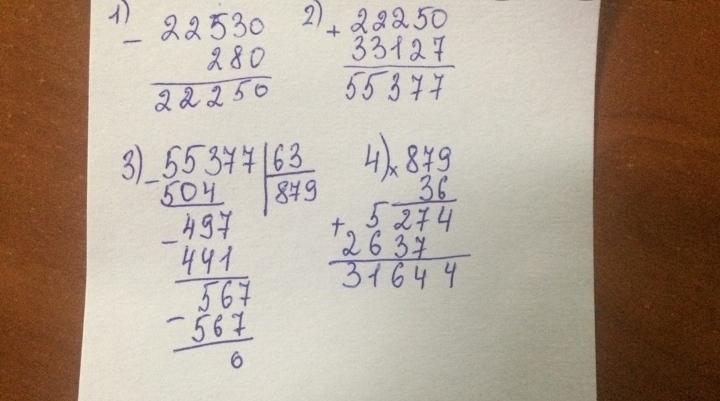 1) - 22530
280
22250
2) + 22250
33127
55377
3) - 55377 | 63
504 | 879
- 497
441
567
- 567
0
4) x 879
36
+ 5274
2637
31644